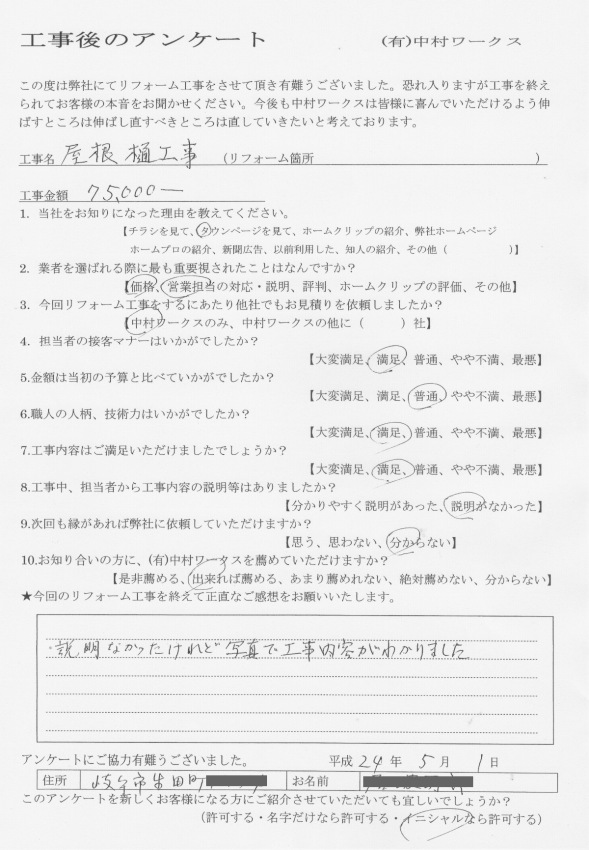 工事後のアンケート　(有)中村ワークス
この度は弊社にてリフォーム工事をさせて頂き有難うございました。恐れ入りますが工事を終え
られてお客様の本音をお聞かせください。今後も中村ワークスは皆様に喜んでいただけるよう伸
ばすところは伸ばし直すべきところは直していきたいと考えております。
工事名 屋根樋工事 （リフォーム箇所　　）
工事金額 75,000ー
1. 当社をお知りになった理由を教えてください。
【チラシを見て、タウンページを見て、ホームクリップの紹介、弊社ホームページ
ホームプロの紹介、新聞広告、以前利用した、知人の紹介、その他（　　）】
2. 業者を選ばれる際に最も重要視されたことはなんですか？
【価格、営業担当の対応・説明、評判、ホームクリップの評価、その他】
3. 今回リフォーム工事をするにあたり他社でもお見積りを依頼しましたか？
【中村ワークスのみ、中村ワークスの他に（　　）社】
4. 担当者の接客マナーはいかがでしたか？
【大変満足、満足、普通、やや不満、最悪】
5.金額は当初の予算と比べていかがでしたか？
【大変満足、満足、普通、やや不満、最悪】
6.職人の人柄、技術力はいかがでしたか？
【大変満足、満足、普通、やや不満、最悪】
7.工事内容はご満足いただけましたでしょうか？
【大変満足、満足、普通、やや不満、最悪】
8.工事中、担当者から工事内容の説明等はありましたか？
【分かりやすく説明があった、説明がなかった】
9.次回も縁があれば弊社に依頼していただけますか？
【思う、思わない、分からない】
10.お知り合いの方に、(有)中村ワークスを薦めていただけますか？
【是非薦める、出来れば薦める、あまり薦めれない、絶対薦めない、分からない】
★今回のリフォーム工事を終えて正直なご感想をお願いいたします。
・説明なかったけれど写真で工事内容がわかりました
アンケートにご協力有難うございました。　平成 24 年 5 月 1 日
住所 岐阜市 町 お名前
このアンケートを新しくお客様になる方にご紹介させていただいても宜しいでしょうか？
（許可する・名字だけなら許可する・イニシャルなら許可する）